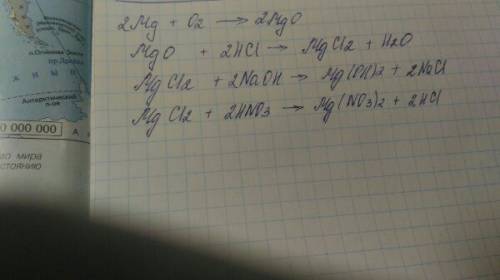 2Mg + O2 → 2MgO
MgO + 2HCl → MgCl2 + H2O
MgCl2 + 2NaOH → Mg(OH)2 + 2NaCl
MgCl2 + 2HNO3 → Mg(NO3)2 + 2HCl
Антарктический
п-ов
0 000 000
А
мира
стоянию